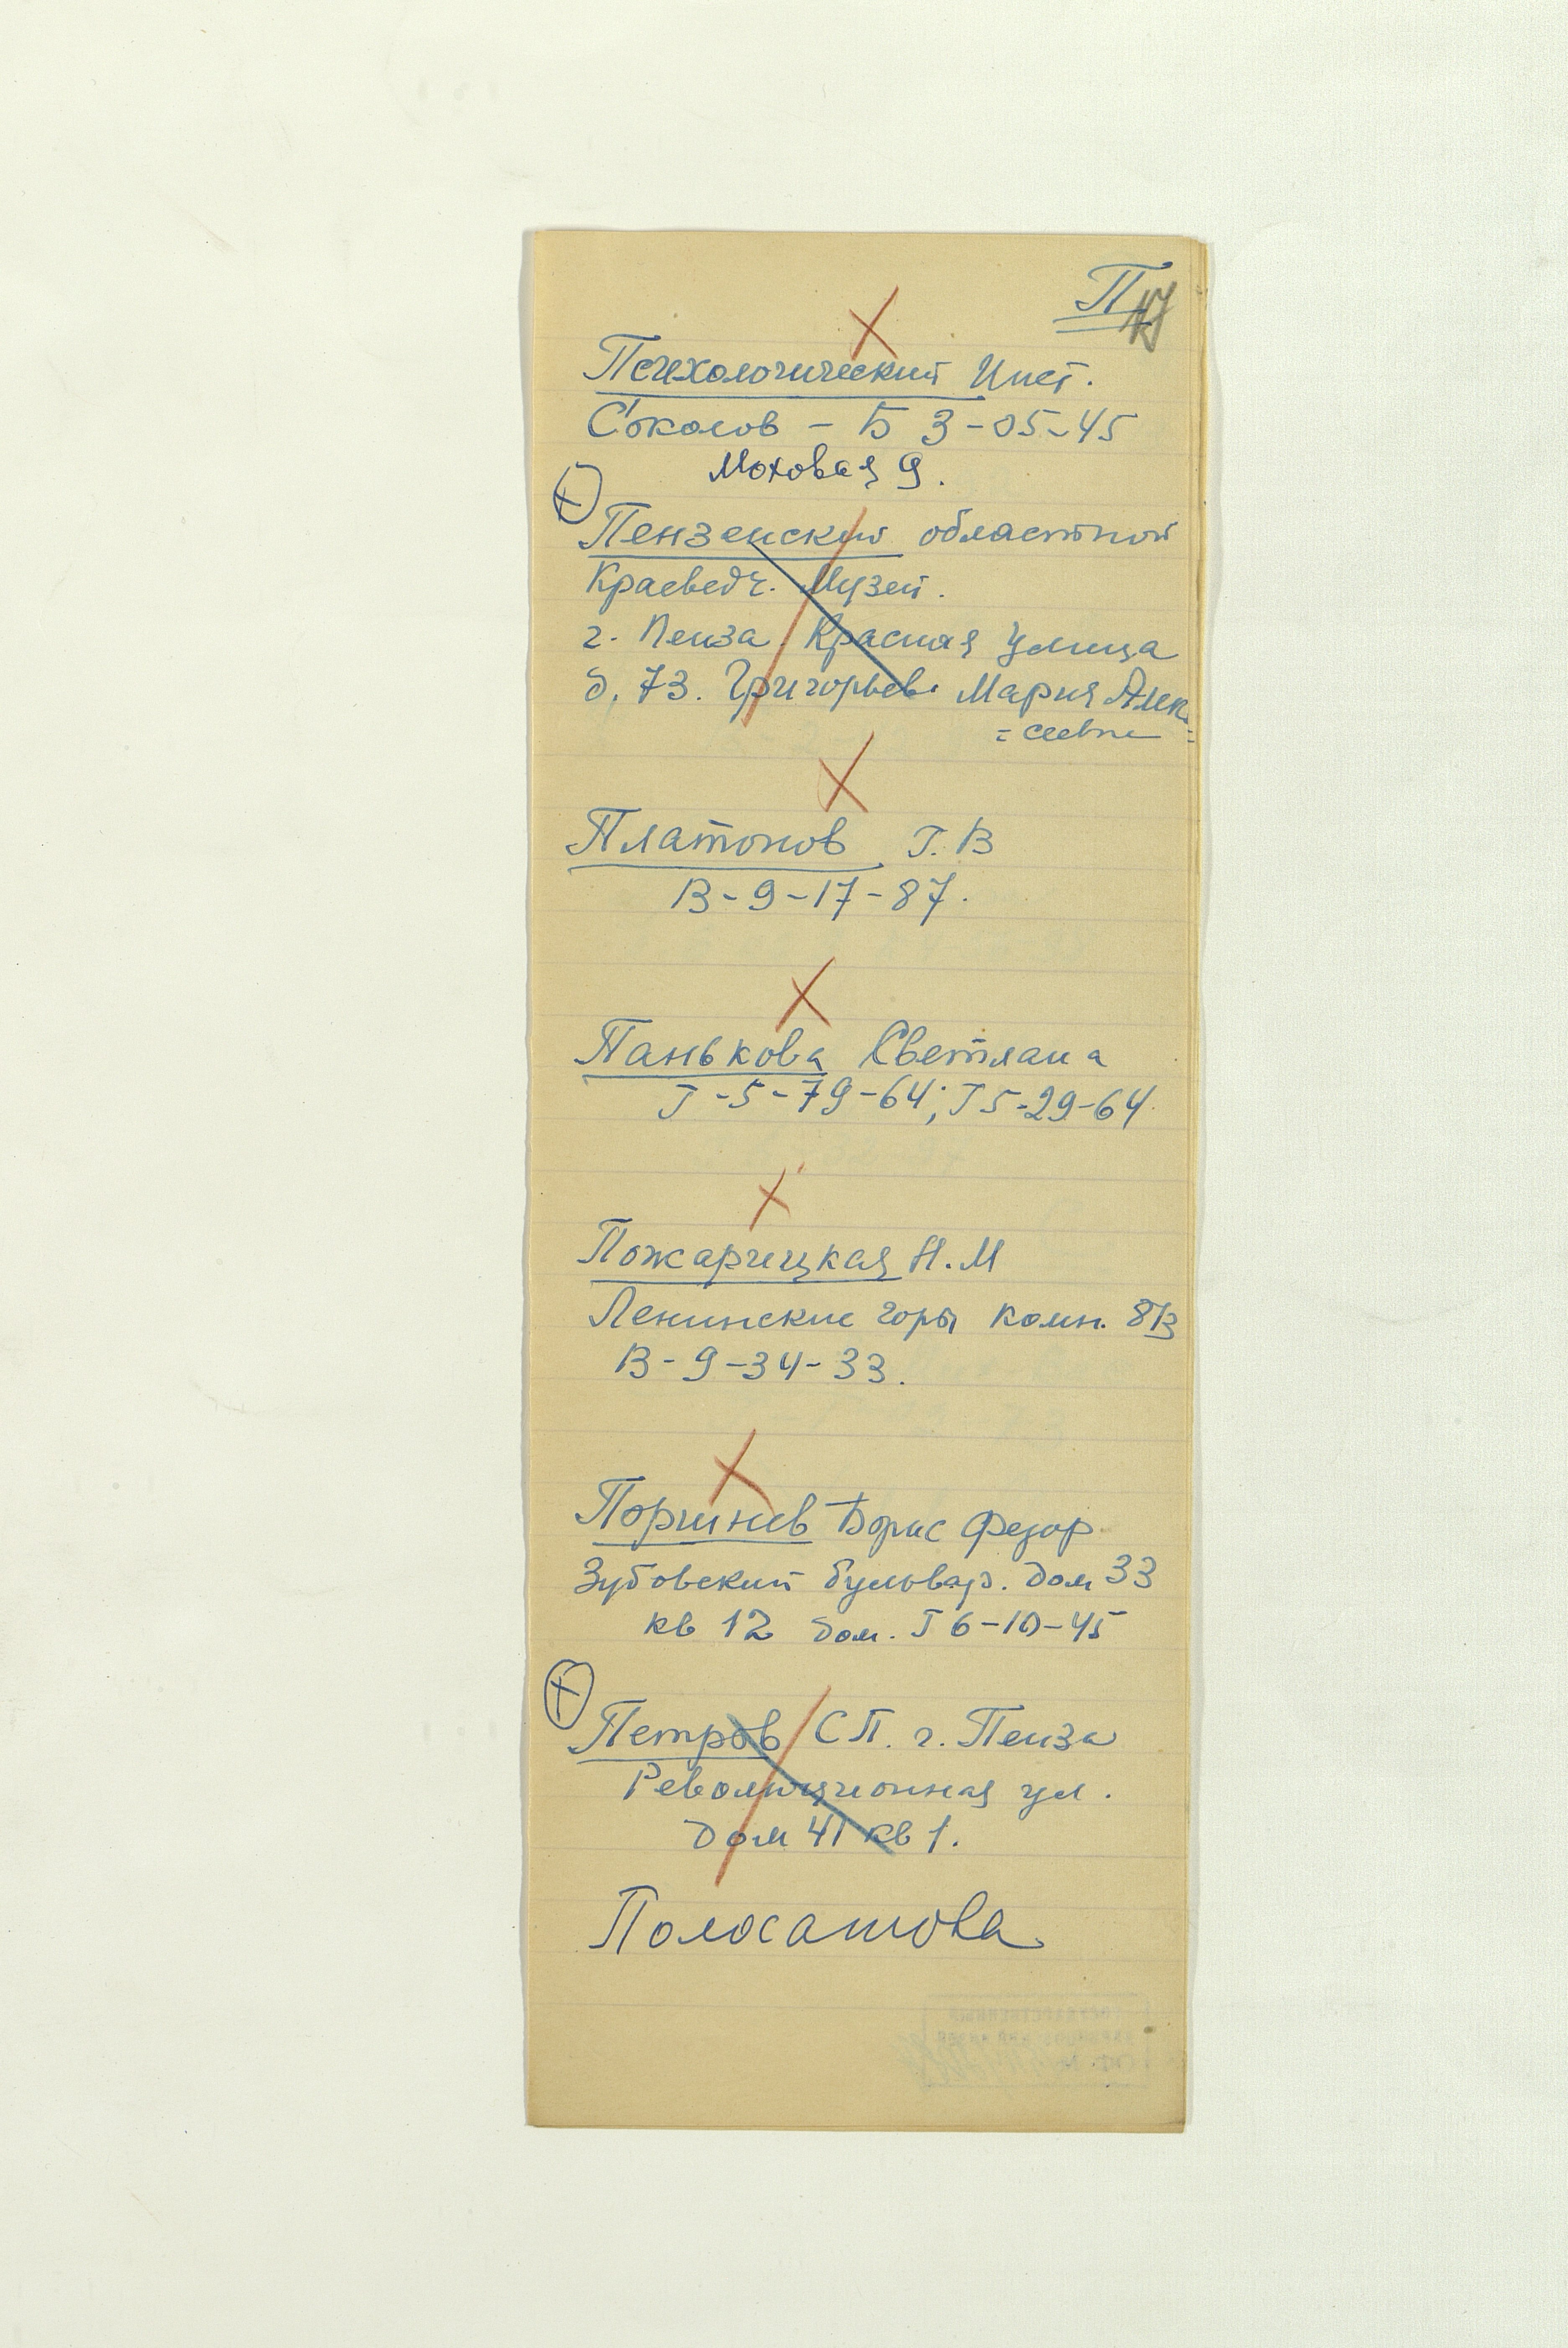 П
Психологический Инст.
Соколов – Б 3-05-45
Моховая 9.
Пензенский областной
Краеведч. Музей.
г. Пенза Красная улица
д. 73. Григорьева Мария Алек
= сеевна
Платонов Г. В
В-9-17-87.
Панькова Светлана
Г-5-79-64; Г5-29-64
Пожарицкая Н.М
Ленинские горы комн. 8В
В-9-34-33.
Поршнев Борис Федор
Зубовский бульвар. дом 33
кв 12 дом. Г 6-10-45
Петров С П. г. Пенза
Революционная ул.
Дом 41 кв 1.
Полосатова